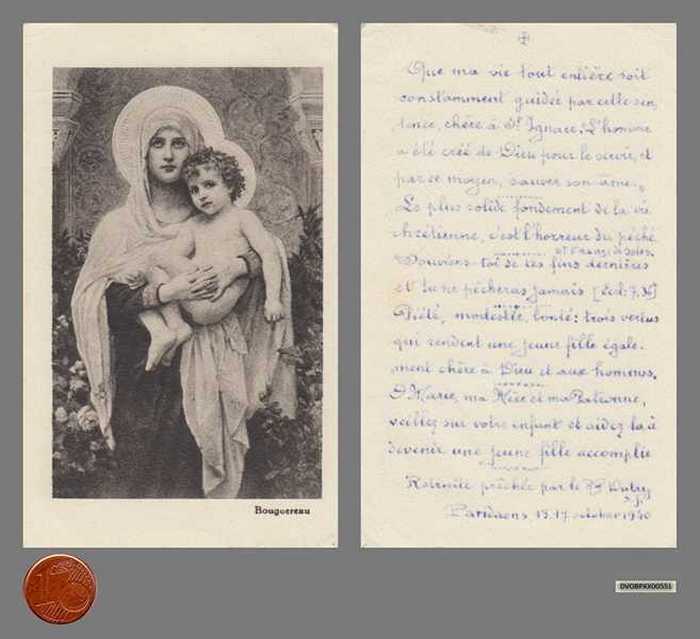 Bouguereau
Que ma vie tout entière soit
constamment guidée par cette sen
tence, chère à St Ignace: "L'homme
a été créé de Dieu pour le servir, et
par ce moyen, sauver son âme."
Le plus solide fondement de la vie
chrétienne, c'est l'horreur du péché.
St François de Sales.
Souviens-toi de tes fins dernières
et tu ne pécheras jamais [Eccl. 7, 36]
Piété, modestie, bonté: trois vertus
qui rendent une jeune fille égale-
ment chère à Dieu et aux hommes.
O Marie, ma Mère et ma Patronne,
veillez sur votre enfant et aidez-la à
devenir une jeune fille accomplie
Retraite prêchée par le RP
s.j.
Paridaens 13-17 octobre 1930
1
DVOBPXX00551